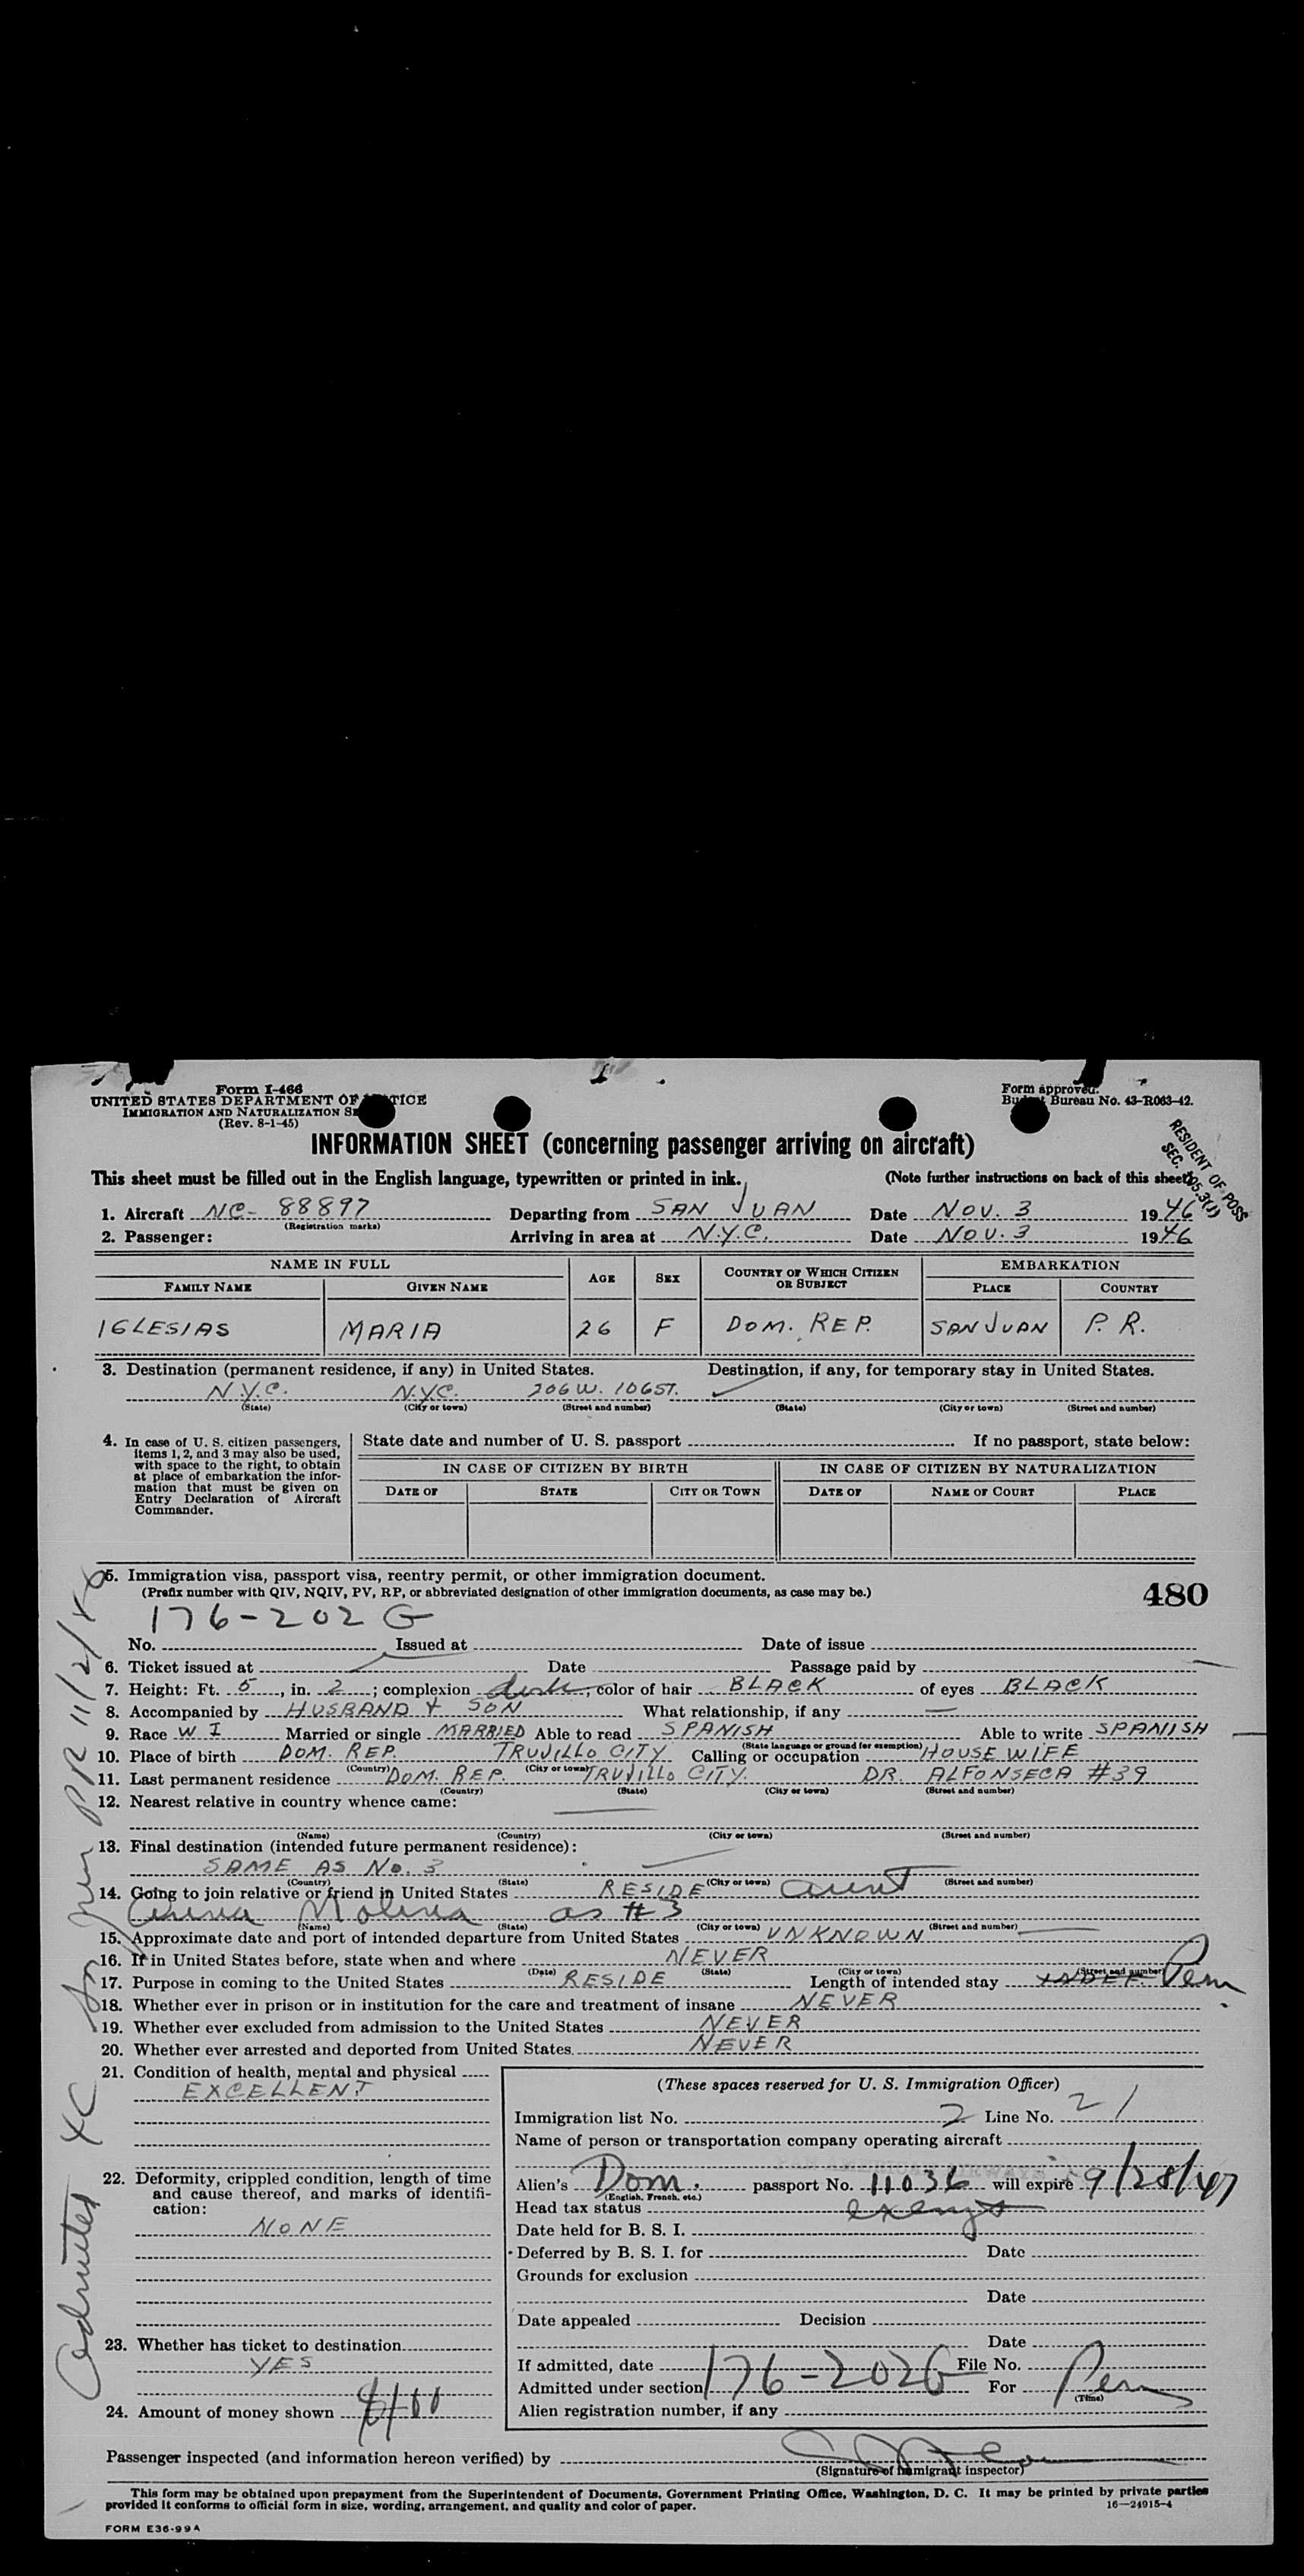 Form I-466
UNITED STATES DEPARTMENT OF
IMMIGRATION AND NATURALIZATION
(Rev. 8-1-45)
Form approved.
Bureau No. 43-R063-42.
RESIDENT OF POSS
SEC.
INFORMATION SHEET (concerning passenger arriving on aircraft)
This sheet must be filled out in the English language, typewritten or printed in ink.
(Note further instructions on back of this sheet)
1. Aircraft NC-88897 Departing from SAN JUAN Date NOV. 3 1946
(Registration marks)
2. Passenger: Arriving in area at N.Y.C. Date NOV. 3 1946
NAME IN FULL AGE SEX COUNTRY OF WHICH CITIZEN OR SUBJECT EMBARKATION
FAMILY NAME GIVEN NAME PLACE COUNTRY
IGLESIAS MARIA 26 F DOM. REP. SAN JUAN P. R.
3. Destination (permanent residence, if any) in United States. Destination, if any, for temporary stay in United States.
N.Y.C. N.Y.C. 206 W. 106 ST.
(State) (City or town) (Street and number) (State) (City or town) (Street and number)
4. In case of U. S. citizen passengers, items 1, 2, and 3 may also be used, with space to the right, to obtain at place of embarkation the information that must be given on Entry Declaration of Aircraft Commander.
State date and number of U. S. passport If no passport, state below:
IN CASE OF CITIZEN BY BIRTH IN CASE OF CITIZEN BY NATURALIZATION
DATE OF STATE CITY OR TOWN DATE OF NAME OF COURT PLACE
5. Immigration visa, passport visa, reentry permit, or other immigration document.
(Prefix number with QIV, NQIV, PV, RP, or abbreviated designation of other immigration documents, as case may be.)
480
176-202 G
No. Issued at Date of issue
6. Ticket issued at Date Passage paid by
7. Height: Ft. 5, in. 2; complexion dark, color of hair BLACK of eyes BLACK
8. Accompanied by HUSBAND & SON What relationship, if any —
9. Race W I Married or single MARRIED Able to read SPANISH Able to write SPANISH
(State language or ground for exemption)
10. Place of birth DOM. REP. TRUJILLO CITY Calling or occupation HOUSE WIFE
(Country) (City or town)
11. Last permanent residence DOM. REP. TRUJILLO CITY. DR. ALFONSECA #39
(Country) (State) (City or town) (Street and number)
12. Nearest relative in country whence came:
(Name) (Country) (City or town) (Street and number)
13. Final destination (intended future permanent residence):
SAME AS No. 3
(Country) (State) (City or town) (Street and number)
14. Going to join relative or friend in United States RESIDE aunt
Molina as #3
(Name) (State) (City or town) (Street and number)
15. Approximate date and port of intended departure from United States UNKNOWN
16. If in United States before, state when and where NEVER
(Date) (State) (City or town) (Street and number)
17. Purpose in coming to the United States RESIDE Length of intended stay INDEF. Perm
18. Whether ever in prison or in institution for the care and treatment of insane NEVER
19. Whether ever excluded from admission to the United States NEVER
20. Whether ever arrested and deported from United States. NEVER
21. Condition of health, mental and physical
EXCELLENT
22. Deformity, crippled condition, length of time and cause thereof, and marks of identification:
NONE
23. Whether has ticket to destination
YES
24. Amount of money shown
(These spaces reserved for U. S. Immigration Officer)
Immigration list No. 2 Line No. 21
Name of person or transportation company operating aircraft
Alien's Dom. passport No. 11036 will expire 9/28/47
(English, French, etc.)
Head tax status exempt
Date held for B. S. I.
Deferred by B. S. I. for Date
Grounds for exclusion
Date
Date appealed Decision
Date
If admitted, date File No.
Admitted under section 176-202G For Perm
(Time)
Alien registration number, if any
Passenger inspected (and information hereon verified) by
(Signature of immigrant inspector)
This form may be obtained upon prepayment from the Superintendent of Documents, Government Printing Office, Washington, D. C. It may be printed by private parties
provided it conforms to official form in size, wording, arrangement, and quality and color of paper.
16—24915-4
FORM E36-99A
Admitted 4C
PR 11/2/46